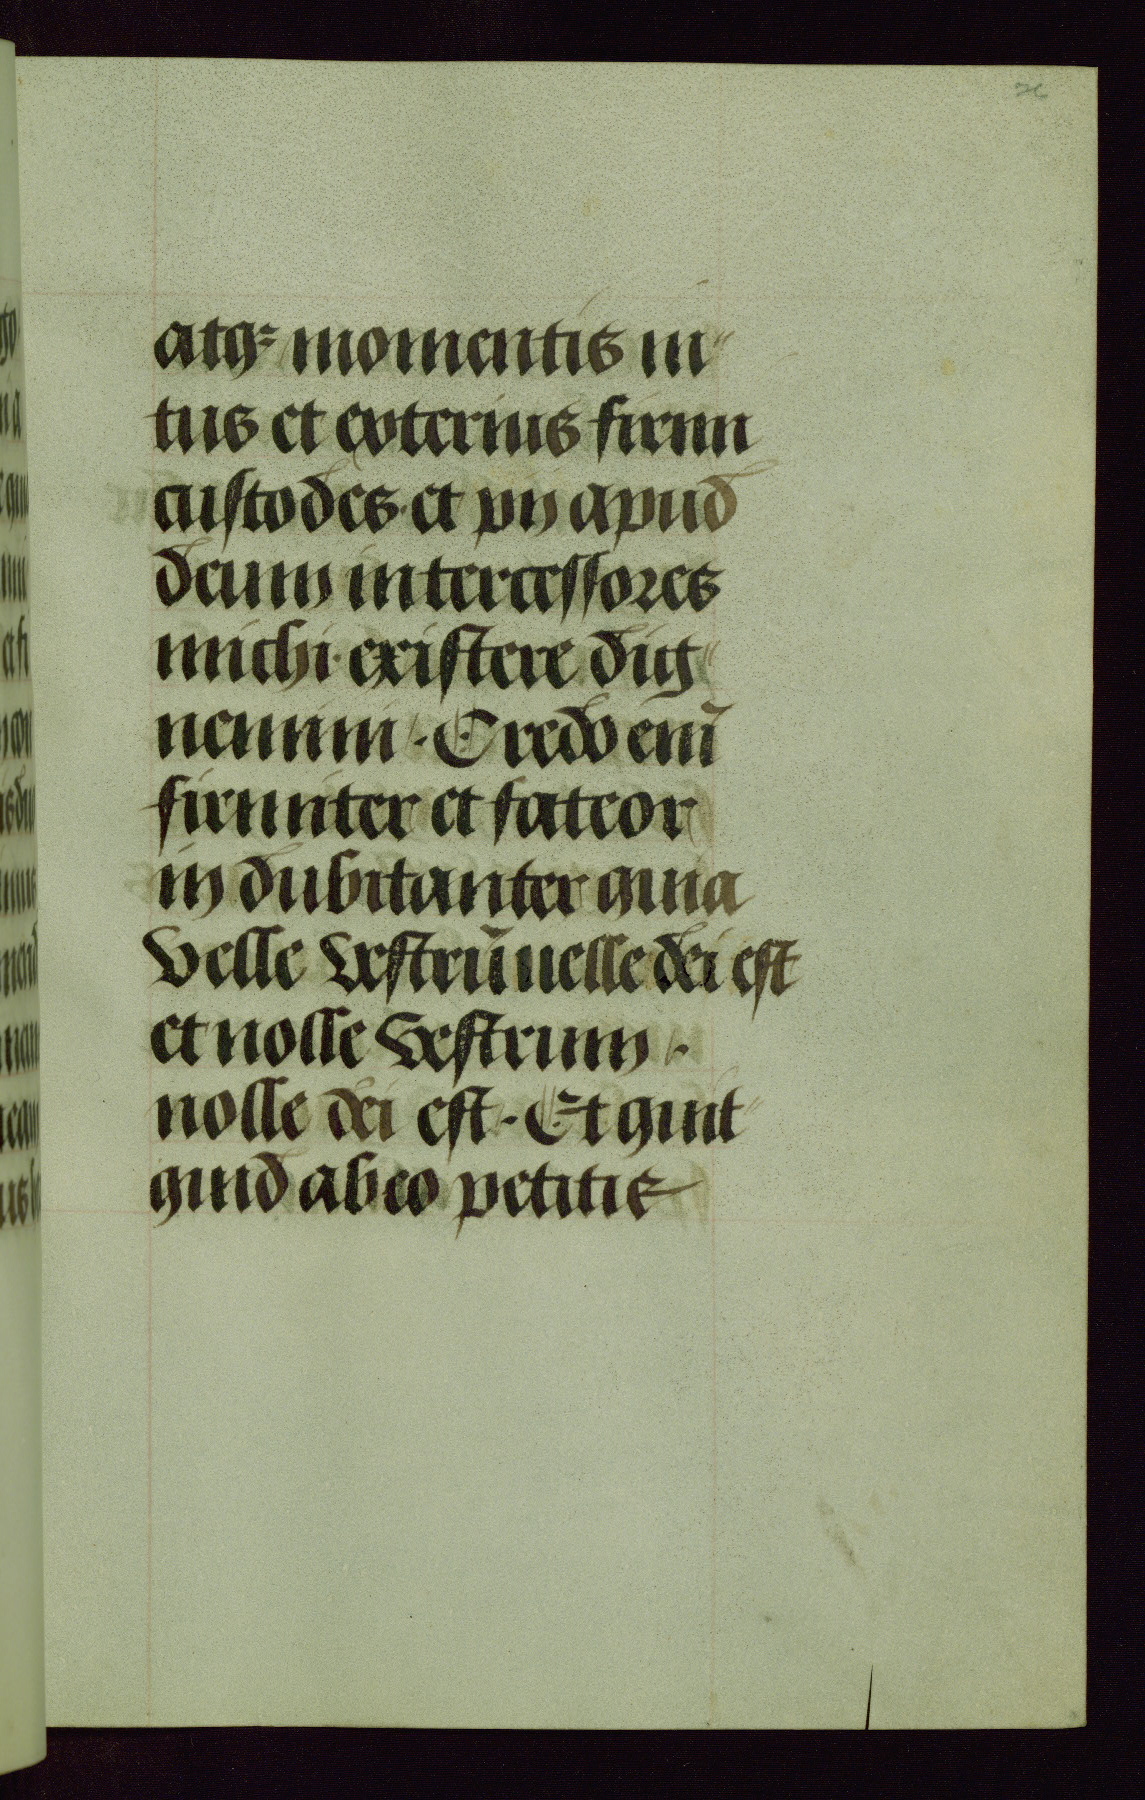 atq̃ momentis in"
tus et exterius firmi
custodes et pij apud
deum intercessores
michi existere dig"
nemini. Credo enī
firmiter et fateor
in dubitanter quia
velle vestrū uelle dei est
et nolle vestrum.
nolle dei est. Et quit"
quid ab eo petitis